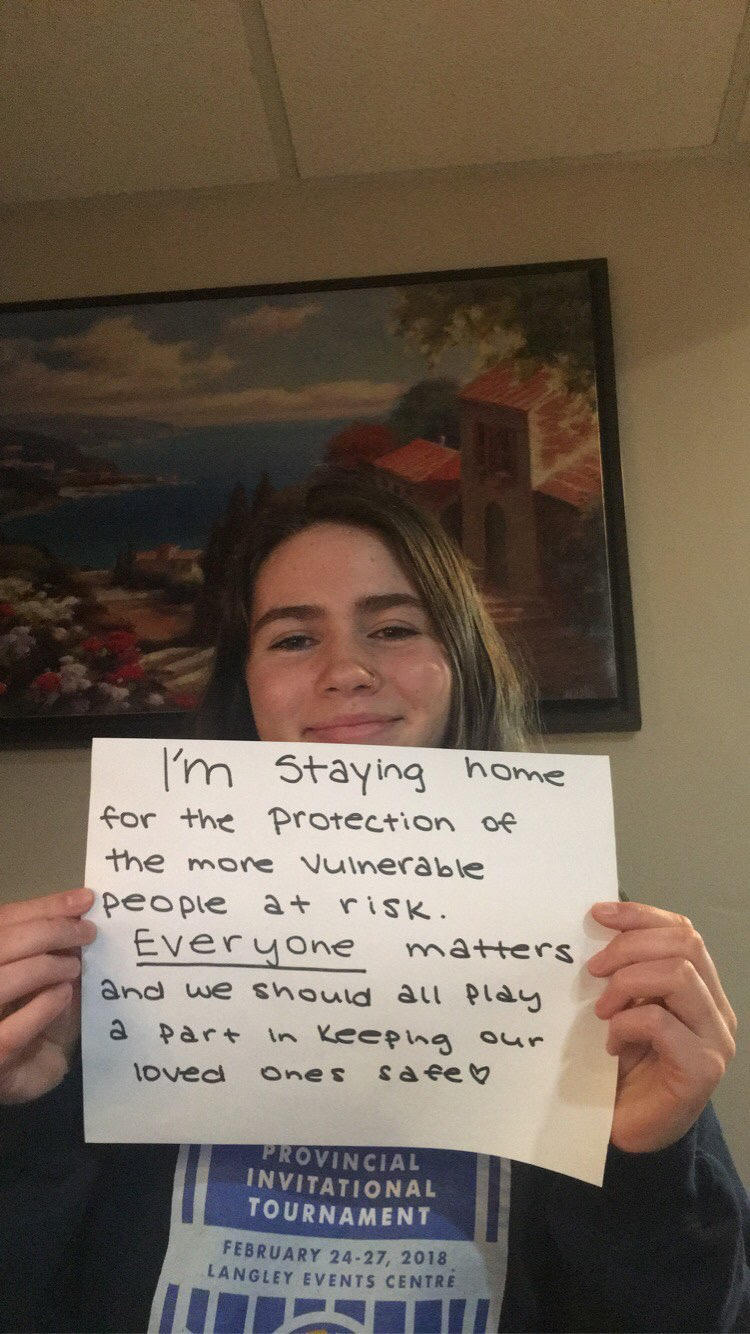 I'm staying home
for the protection of
the more vulnerable
people at risk.
Everyone matters
and we should all play
a part in keeping our
loved ones safe♡
PROVINCIAL
INVITATIONAL
TOURNAMENT
FEBRUARY 24-27, 2018
LANGLEY EVENTS CENTRE